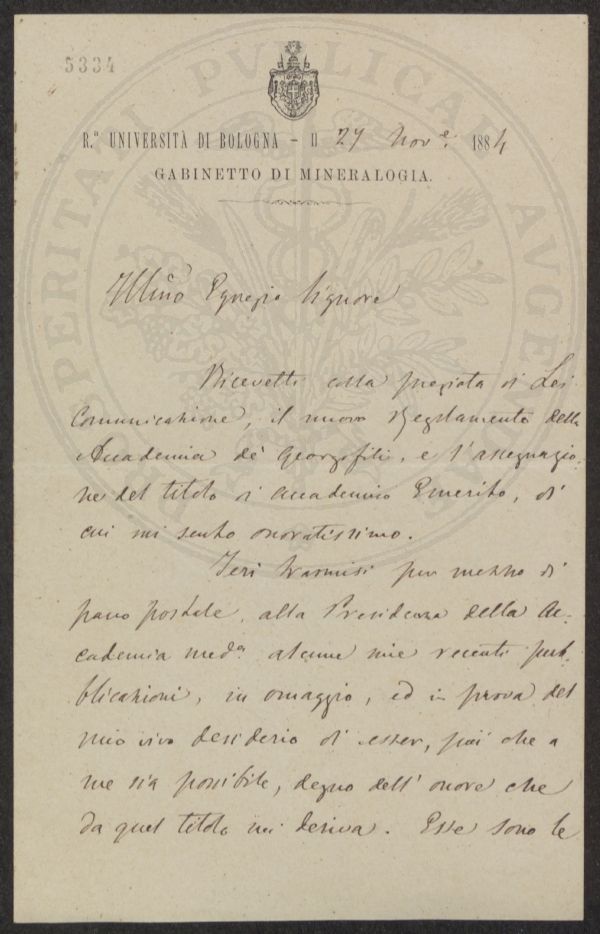 5334
R.ª UNIVERSITÀ DI BOLOGNA - Il 27 Nov.e 1884
GABINETTO DI MINERALOGIA.
Illmo Egregio Signore
Ricevetti colla pregiata di Lei
Comunicazione, il nuovo Regolamento della
Accademia de' Georgofili, e l'assegnazio-
ne del titolo di Accademico Emerito, di
cui mi sento onoratissimo.
Ieri trasmisi per mezzo di
pacco postale, alla Presidenza della Ac-
cademia med.a alcune mie recenti pub-
blicazioni, in omaggio, ed in prova del
mio vivo desiderio di esser, più che a
me sia possibile, degno dell'onore che
da quel titolo mi deriva. Esse sono le